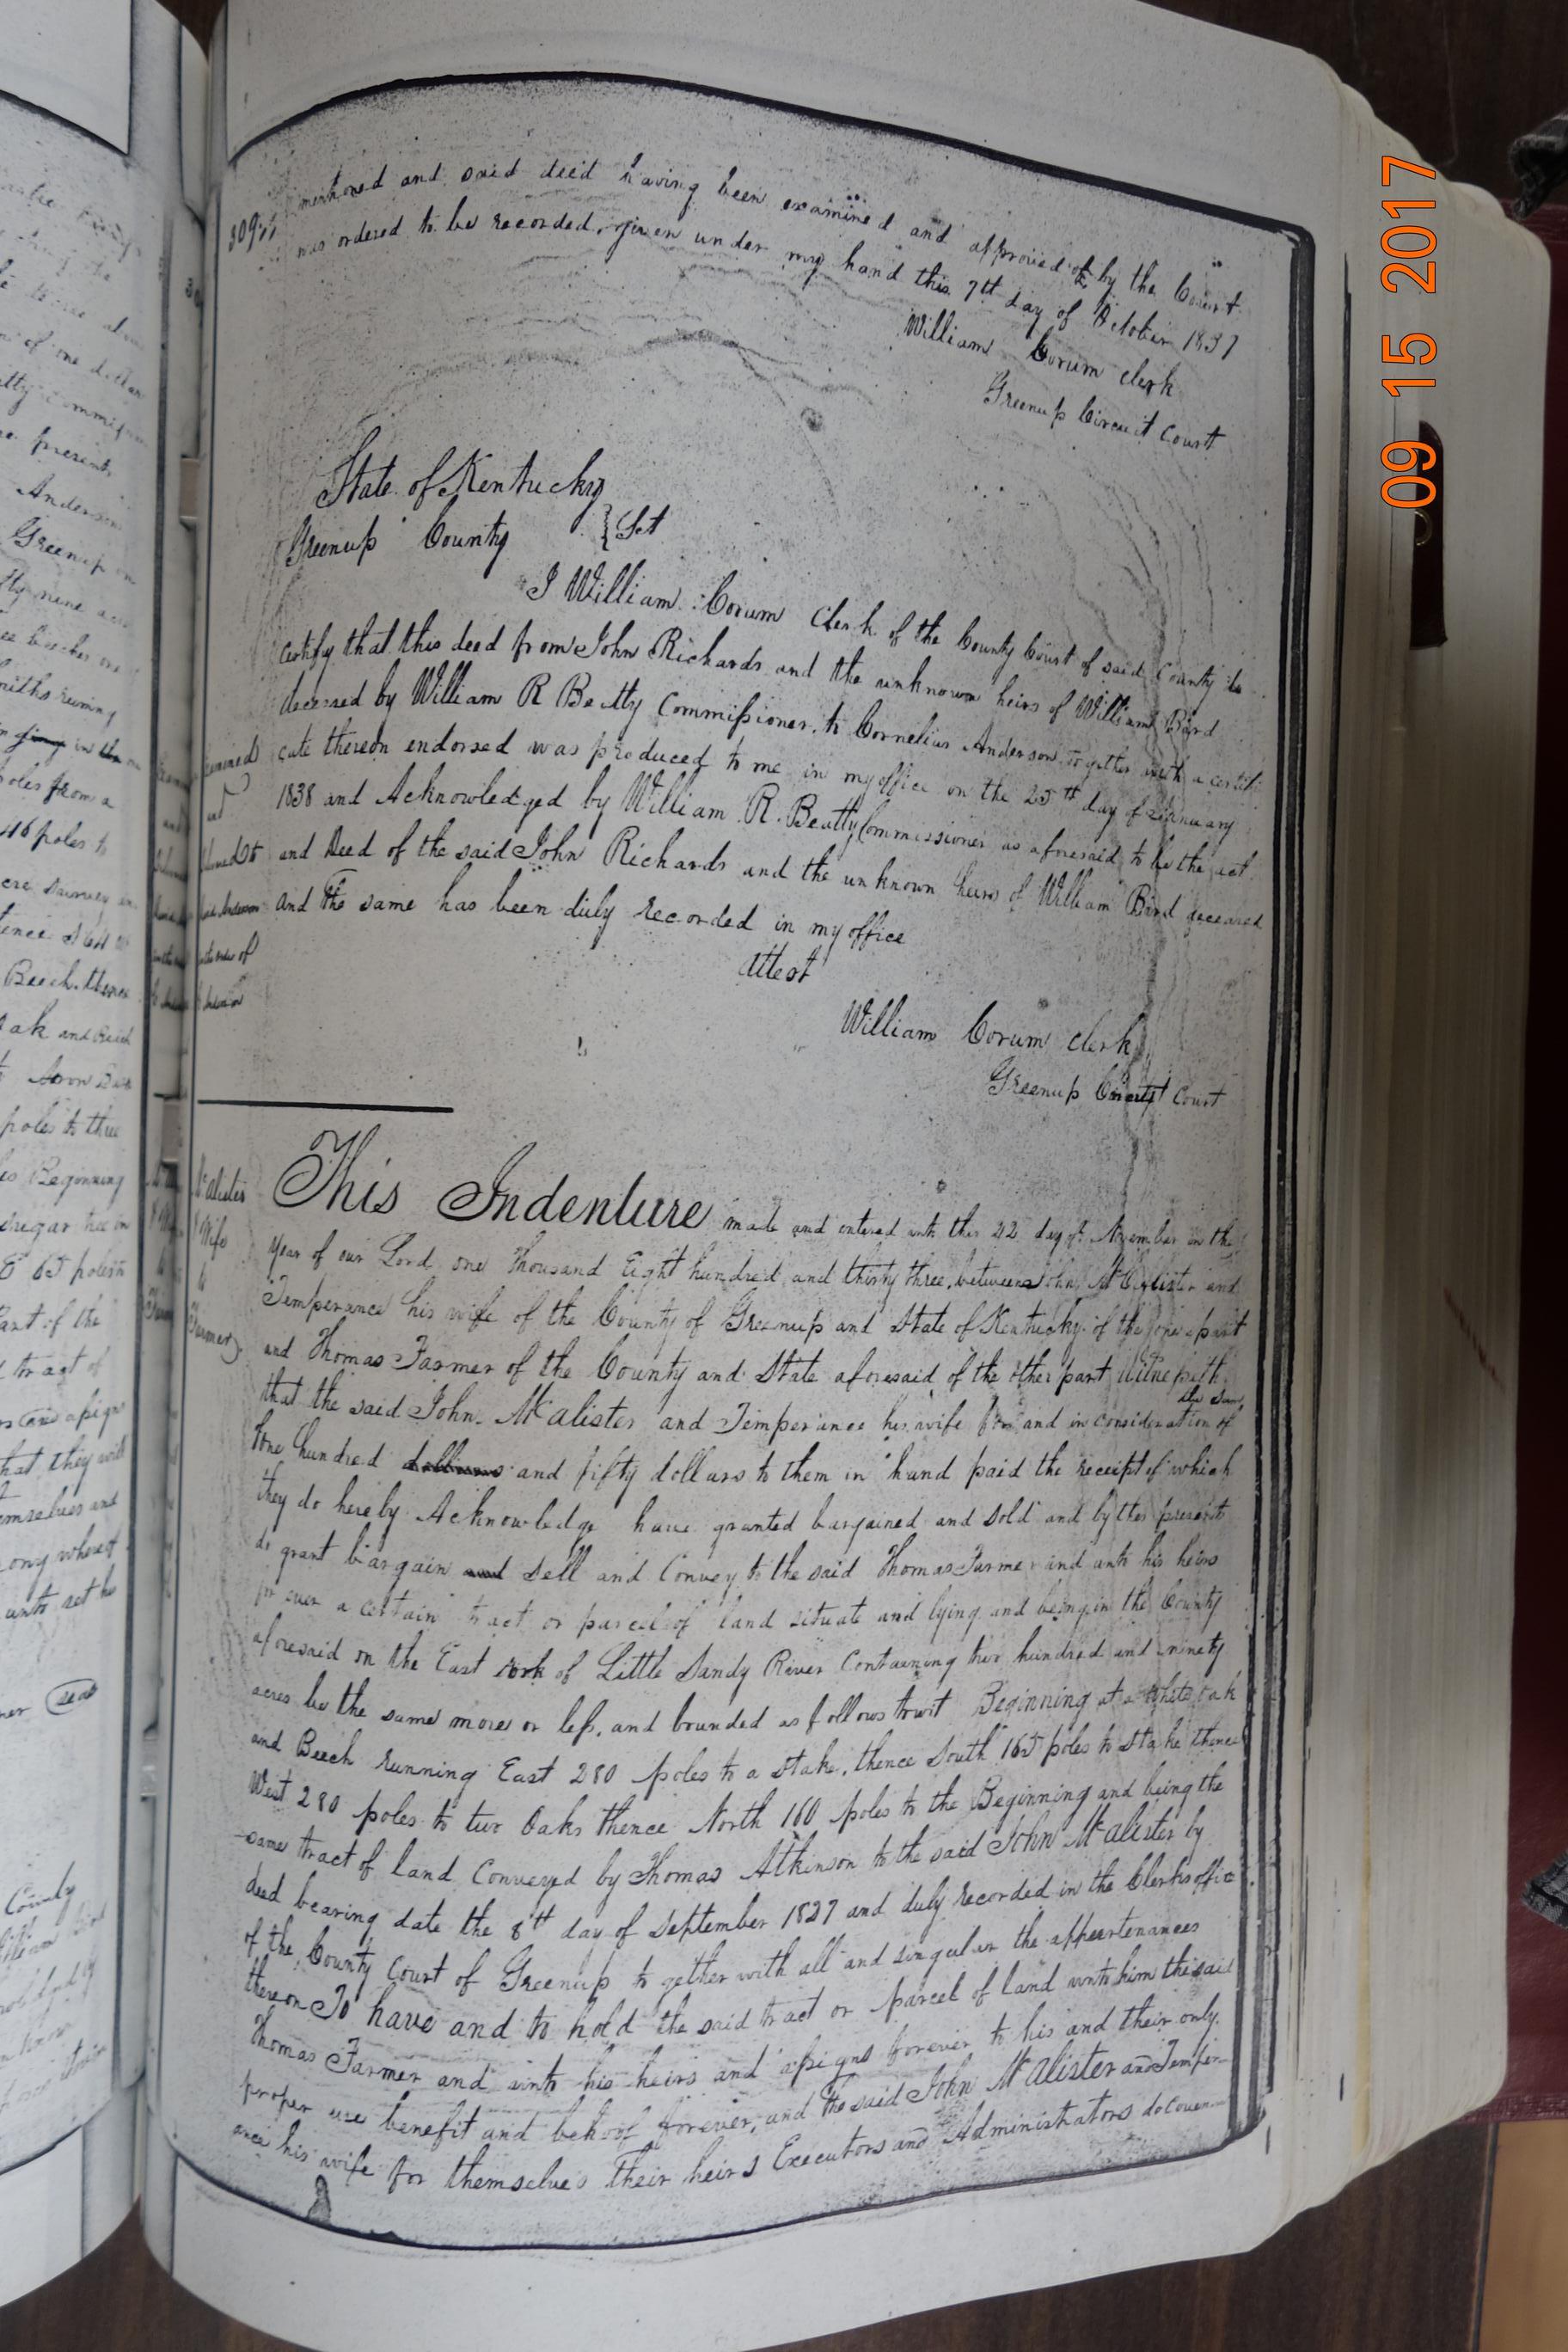 309
mentioned and said deed having been examined and approved of by the Court
was ordered to be recorded, given under my hand this 7th day of October 1837
William Corum clerk
Greenup Circuit Court
State of Kentucky
Greenup County } Sct
I William Corum Clerk of the County Court of said County do
certify that this deed from John Richards and the unknown heirs of William Bird
deceased by William R Beatty Commissioner, to Cornelius Anderson together with a certifi
cate thereon endorsed was produced to me in my office on the 25th day of January
1838 and Acknowledged by William R. Beatty Commissioner as aforesaid to be the act
and Deed of the said John Richards and the unknown heirs of William Bird deceased
and the same has been duly recorded in my office
Attest
William Corum clerk
Greenup County Court
McAlister
& Wife
to
Farmer
This Indenture made and entered into this 22 day of November in the
year of our Lord one Thousand Eight hundred and thirty three, between John McAlister and
Temperance his wife of the County of Greenup and State of Kentucky of the one part
and Thomas Farmer of the County and State aforesaid of the other part Witnesseth
that the said John McAlister and Temperance his wife for and in consideration of the sum
One hundred dollars and fifty dollars to them in hand paid the receipt of which
they do hereby Acknowledge have granted bargained and sold and by thes presents
do grant bargain and Sell and Convey to the said Thomas Farmer and unto his heirs
for ever a certain tract or parcel of land situate and lying and being in the County
aforesaid on the East fork of Little Sandy River Containing two hundred and ninety
acres be the same more or less, and bounded as follows towit Beginning at a white oak
and Beech running East 280 poles to a Stake, thence South 165 poles to Stake thence
West 280 poles to two Oaks thence North 160 poles to the Beginning and being the
same tract of land Conveyed by Thomas Atkinson to the said John McAlister by
deed bearing date the 8th day of September 1827 and duly recorded in the Clerks office
of the County Court of Greenup together with all and singular the appurtenances
thereon To have and to hold the said tract or parcel of land unto him the said
Thomas Farmer and unto his heirs and assigns forever to his and their only
proper use benefit and behoof forever, and the said John McAlister and Temper
ance his wife for themselves their heirs Executors and Administrators do coven
09 15 2017